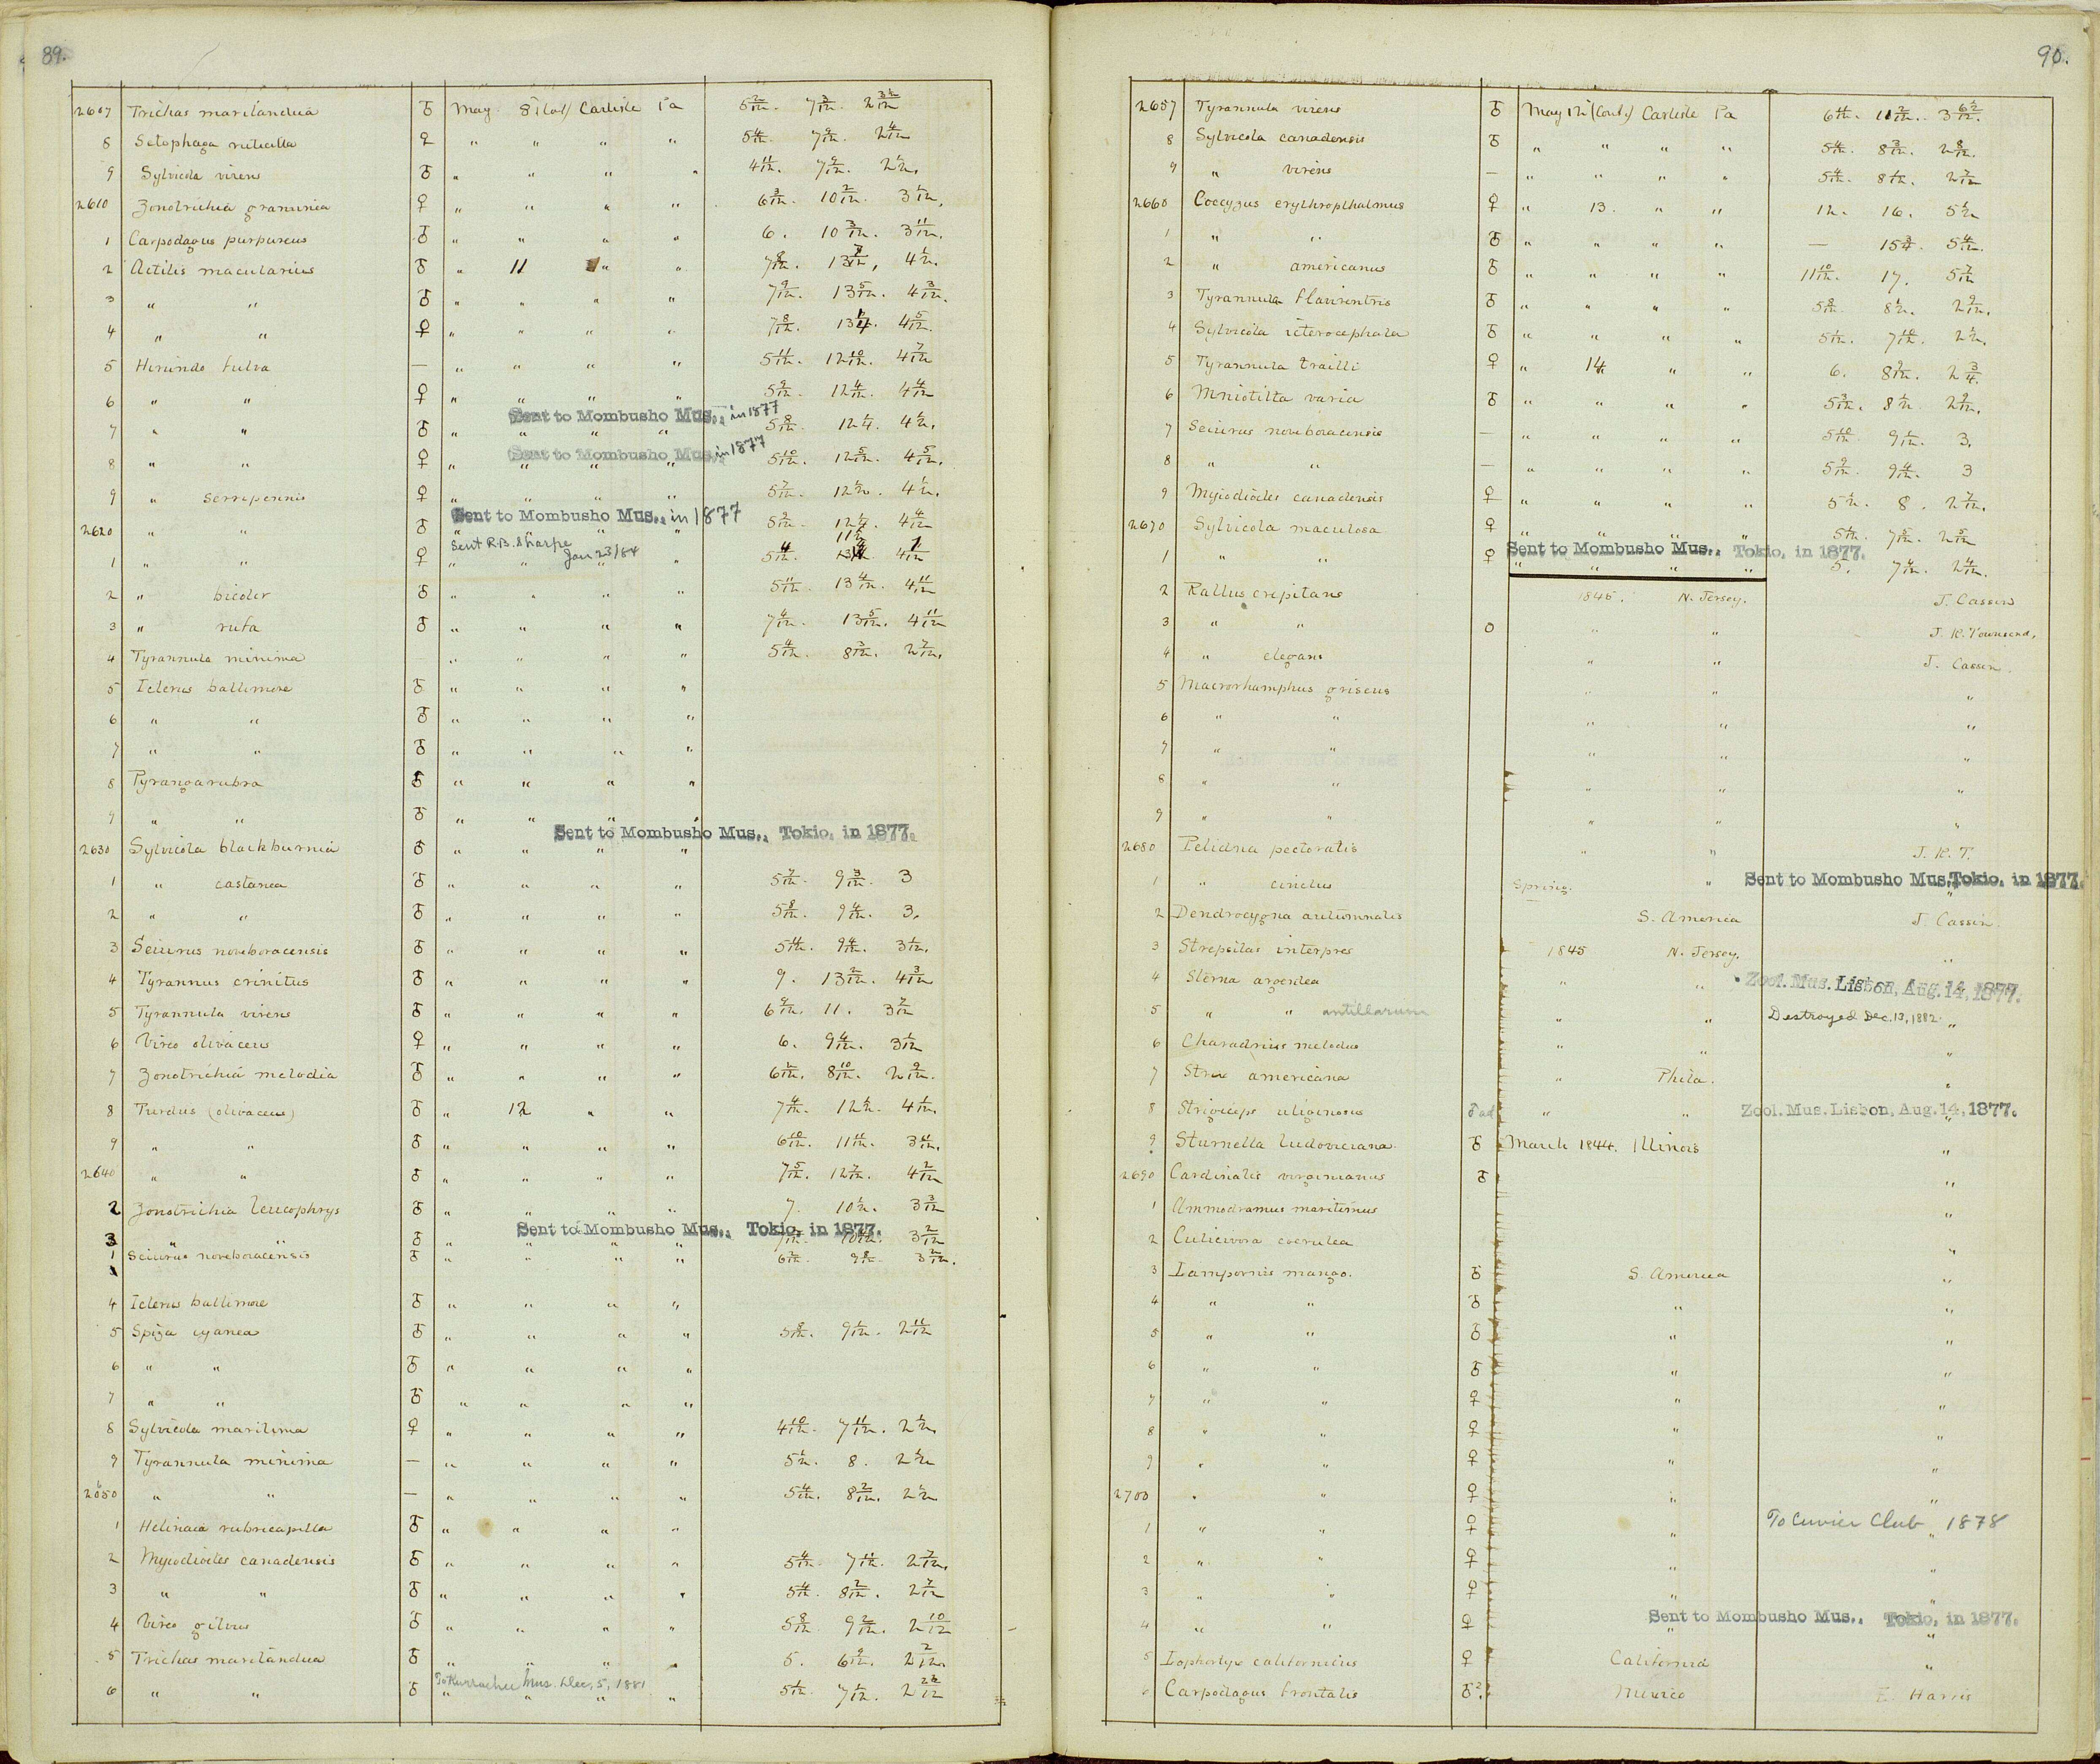 89.
2607 Trichas marilandica ♂ May 8 Carlisle Pa 5 2/12. 7 3/12.
8 Setophaga ruticilla ♀ " " " " 5 4/12.
9 Sylvicola virens ♂ " " " " 4 11/12.
2610 Zonotrichia graminea ♀ " " " " 6 3/12. 10 2/12.
1 Carpodacus purpureus ♂ " " " " 6. 10 3/12. 3 11/12.
2 Actitis macularius ♂ " 11 " " 7 8/12.
3 " " ♂ " " " " 7 9/12. 13 5/12. 4 3/12.
4 " " ♀ " " " " 7 8/12. 4 5/12.
5 Hirundo fulva — " " " " 5 11/12. 12 10/12. 4 7/12
6 " " ♀ " " " " 5 9/12. 12 4/12. 4 4/12
Sent to Mombusho Mus., in 1877
7 " " ♂ " " " " 5 8/12.
Sent to Mombusho Mus. in 1877
8 " " ♀ " " " " 5 10/12. 12 5/12. 4 5/12.
9 " serripennis ♀ " " " "
Sent to Mombusho Mus., in 1877
2620 " " ♂ " " " "
Sent R.B. Sharpe Jan 23/84
1 " " ♀ " " " "
2 " bicolor ♂ " " " " 5 11/12. 13 4/12. 4 11/12
3 " rufa ♂ " " " " 7 4/12. 13 5/12. 4 11/12
4 Tyrannula minima " " " " 5 4/12.
5 Icterus baltimore ♂ " " " "
6 " " ♂ " " " "
7 " " ♂ " " " "
8 Pyranga rubra ♂ " " " "
9 " " ♂ " " " "
Sent to Mombusho Mus., Tokio, in 1877.
2630 Sylvicola blackburnia ♂ " " " "
1 " castanea ♂ " " " " 5 7/12. 9 3/12. 3
2 " " ♂ " " " " 5 8/12. 9 4/12. 3.
3 Seiurus noveboracensis ♂ " " " "
4 Tyrannus crinitus ♂ " " " " 9. 13 2/12. 4 3/12
5 Tyrannula virens ♂ " " " " 11.
6 Vireo olivaceus ♀ " " " " 6. 9 4/12.
7 Zonotrichia melodia ♂ " " " " 8 10/12. 2 9/12.
8 Turdus (olivaceus) ♂ " 12 " " 7 4/12.
9 " " ♂ " " " " 6 10/12. 11 11/12.
2640 " " ♂ " " " " 7 5/12. 4 2/12
2 Zonotrichia leucophrys ♂ " " " " 7. 3 3/12
Sent to Mombusho Mus., Tokio, in 1877.
3 " " ♂ " " " " 3 2/12
1 Seiurus noveboracensis ♂ " " " "
4 Icterus baltimore ♂ " " " "
5 Spiza cyanea ♂ " " " " 5 8/12. 2 11/12
6 " " ♂ " " " "
7 " " ♂ " " " "
8 Sylvicola maritima ♀ " " " " 4 10/12. 7 11/12. 2 1/2.
9 Tyrannula minima — " " " " 5 1/2. 8. 2 1/2
2650 " " — " " " " 5 4/12. 8 2/12. 2 1/2
1 Helinaia rubricapilla ♂ " " " "
2 Myiodioctes canadensis ♂ " " " " 5 4/12. 7 11/12. 2 7/12.
3 " " ♂ " " " " 8 2/12. 2 7/12
4 Vireo gilvus ♂ " " " " 5 8/12. 9 2/12. 2 10/12
5 Trichas marilandica ♂ " " " " 5. 6 9/12. 2 2/12.
To Kurrachee Mus. Dec. 5, 1881
6 " " ♂ " " " "
90.
2657 Tyrannula virens ♂ May 12 (Cont.) Carlisle Pa
8 Sylvicola canadensis ♂ " " " " 5 4/12. 8 3/12. 2 8/12.
9 " virens — " " " " 5 4/12.
2660 Coccygus erythropthalmus ♀ " 13. " " 12. 16. 5 1/2
1 " " ♂ " " " " — 5 4/12.
2 " americanus ♂ " " " " 11 10/12. 17. 5 7/12
3 Tyrannula flaviventris ♂ " " " " 5 8/12. 8 1/2. 2 9/12.
4 Sylvicola icterocephala ♂ " " " " 7 10/12. 2 1/2.
5 Tyrannula trailli ♀ " 14 " " 6. 2 3/4.
6 Mniotilta varia ♂ " " " " 5 3/12. 8 1/2. 2 9/12.
7 Seiurus noveboracensis — " " " " 5 10/12. 3.
8 " " — " " " " 5 9/12. 9 4/12. 3
9 Myiodioctes canadensis ♀ " " " " 5 1/2. 8. 2 7/12.
2670 Sylvicola maculosa ♀ " " " " 7 5/12. 2 5/12
Sent to Mombusho Mus., Tokio, in 1877.
1 " " ♀ " " " " 5. 2 4/12.
2 Rallus crepitans 1845. N. Jersey. J. Cassin
3 " " O " " J. K. Townsend.
4 " elegans " " J. Cassin.
5 Macrorhamphus griseus " " "
6 " " " " "
7 " " " " "
8 " " " " "
9 " " " " "
2680 Pelidna pectoralis " " J. K. T.
1 " cinclus Spring. " Sent to Mombusho Mus. Tokio. in 1877.
2 Dendrocygna autumnalis S. America J. Cassin.
3 Strepsilas interpres 1845 N. Jersey. "
4 Sterna argentea " " Zool. Mus. Lisbon, Aug. 14, 1877.
5 " " antillarum " " Destroyed Dec. 13, 1882. "
6 Charadrius melodus " " "
7 Strix americana " Phila. "
8 Strigiceps uliginosus ♂ ad " " Zool. Mus. Lisbon, Aug. 14, 1877.
9 Sturnella ludoviciana. ♂ March 1844. Illinois "
2690 Cardinalis virginianus ♂ "
1 Ammodramus maritimus "
2 Culicivora coerulea "
3 Lampornis mango. ♂ S. America "
4 " " ♂ " "
5 " " ♂ " "
6 " " ♂ " "
7 " " ♀ " "
8 " " ♀ " "
9 " " ♀ " "
2700 " " ♀ " "
1 " " ♀ " To Cuvier Club 1878
2 " " ♀ " "
3 " " ♀ " "
Sent to Mombusho Mus., Tokio, in 1877.
4 " " ♀ " "
5 Lophortyx californicus ♀ California "
6 Carpodacus frontalis ♂?. Mexico E. Harris